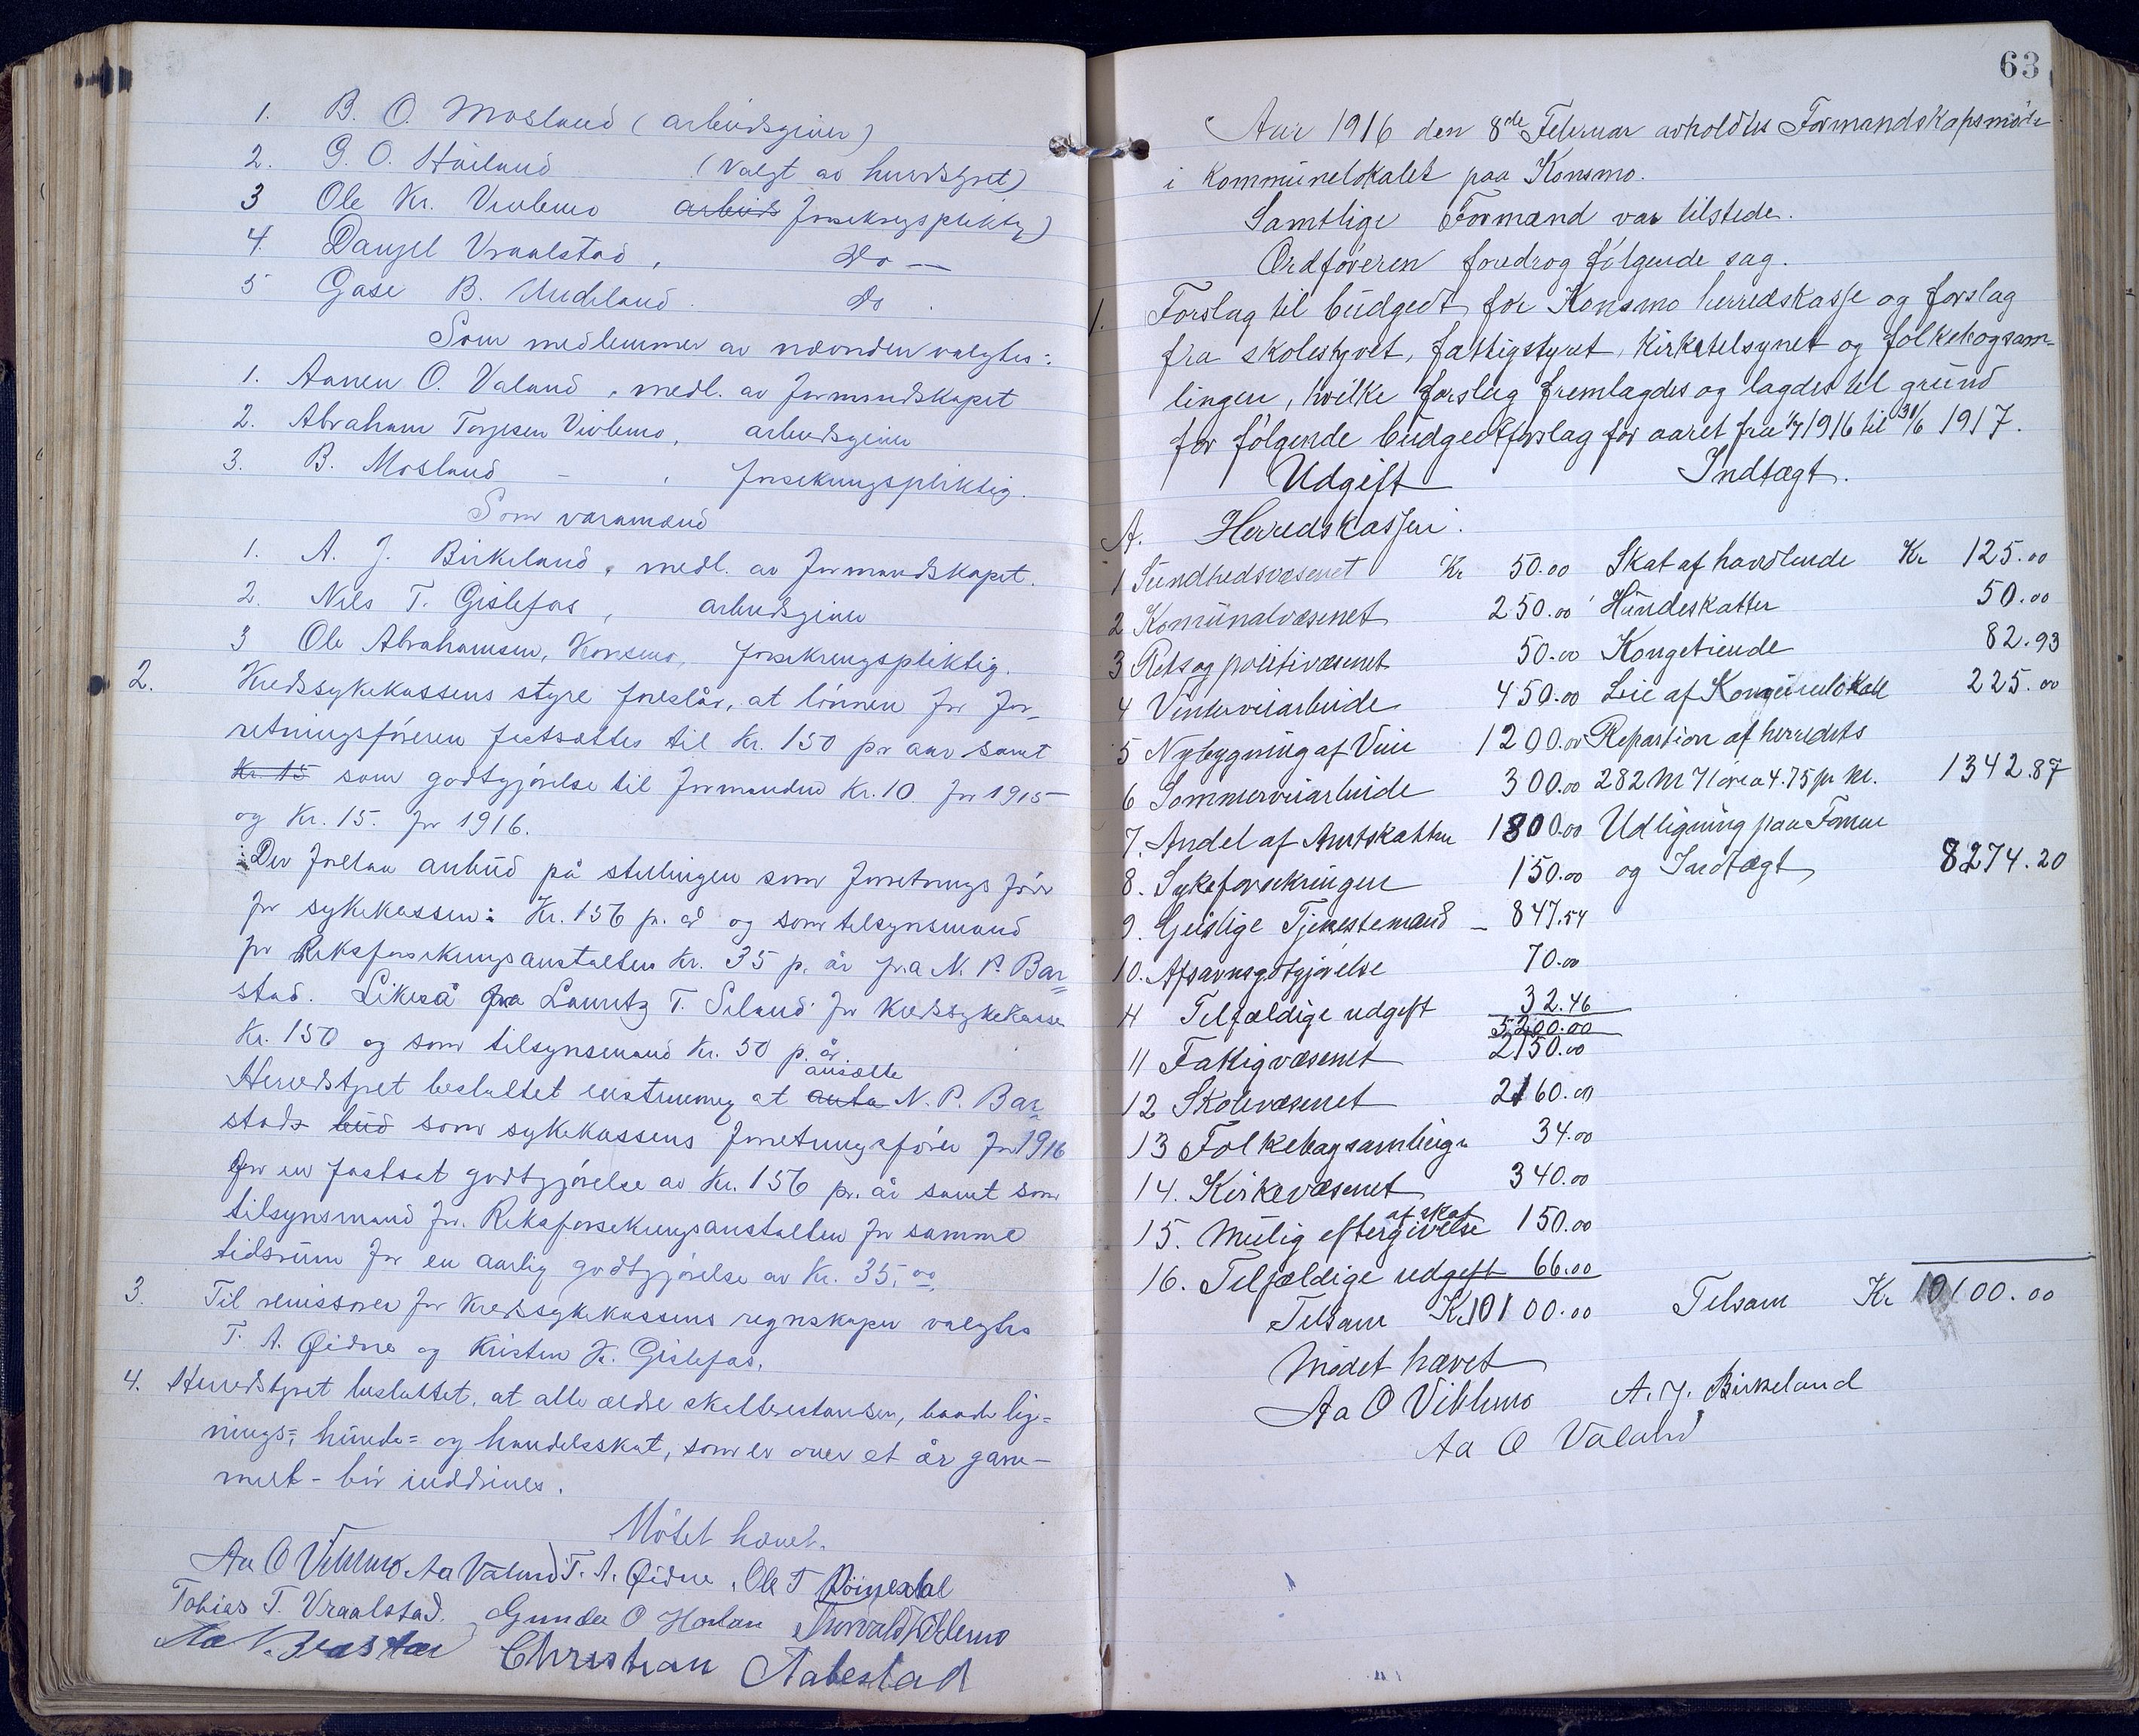 1. B. O. Mosland (arbeidsgiver)
2. G. O. Håiland (valgt av herredstyret)
3 Ole Kr. Viblemo arbeids forsekringspliktig)
4. Daniel Vraalstad, Do —
5 Gase B. Udeland. Do.
Som medlemmer av nævnden valgtes:
1. Aanen O. Valand, medl. av formandskapet
2. Abraham Torjesen Viblemo, arbeidsgiver
3. B. Mosland - , forsekringspliktig.
Som varamænd
1. A. J. Birkeland, medl. av formandskapet.
2. Nils T. Gislefos, arbeidsgiver
3 Ole Abrahamsen, Konsmo, forsekringspliktig.
2. Kredssykekassens styre foreslår, at lönnen for for-
retningsföreren fastsættes til Kr. 150 pr aar samt
Kr 15 som godtgjörelse til formanden Kr. 10 for 1915
og Kr. 15. for 1916.
Der forelaa anbud på stillingen som forretningsförer
for sykekassen: Kr. 156 p. å og som tilsynsmand
for Riksforsekringsanstalten Kr. 35 p. år fra N. P. Bar-
stad. Likeså fra Lauritz T. Seland for Kredssykekassen
Kr. 150 og som tilsynsmand Kr. 50 p. år.
Herredstyret besluttet enstemmig at anta ansætte N. P. Bar-
stads bud som sykekassens forretningsförer for 1916
for en fastsat godtgjörelse av Kr. 156 pr. år samt som
tilsynsmand for Riksforsekringsanstalten for samme
tidsrum for en aarlig godtgjörelse av Kr. 35,00.
3. Til revisorer for Kredssykekassens regnskaper valgtes
T. A. Øidne og Kristen K. Gislefos.
4. Herredstyret besluttet, at alle ældre skatterestanser, baade lig=
nings=, hunde= og handelsskat, som er over et år gam-
melt - bör inddrives.
Mötet hævet.
Aa O Viblemo Aa Valand T. A. Øidne, Ole T Röinesdal
Tobias T. Vraalstad. Gunder O Haaland Thorvald Viblemo
Christian Aabestad
63
Aar 1916 den 8de Februar avholdtes Formandskapsmöde
i Kommunelokalet paa Konsmo.
Samtlige Formænd var tilstede.
Ordföreren foredrog fölgende sag.
1. Forslag til budgedt for Konsmo herredskasse og forslag
fra skolestyret, fattigstyret, kirketelsynet og folkebogsam-
lingen, hvilke forslag fremlagdes og lagdes til grund
for fölgende budgedtforslag for aaret fra 1/7 1916 til 30/6 1917.
Udgift Indtægt.
A. Herredskassen.
1 Sundhedsvæsenet Kr 50.00 Skat af handlende Kr 125.00
2 Komunalvæsenet 250.00 Hundeskatten 50.00
3 Rets og politivæsenet 50.00 Kongetiende 82.93
4 Vinterveiarbeide 450.00 Leie af Komunelokale 225.00
5 Nybygning af Veie 1200.00 Repartion af herredets
6 Sommerveiarbeide 300.00 282 M 71 öre a 4.75 pr M. 1342.87
7. Andel af Amtskatten 1800.00 Udligning paa Formue
8. Sykeforsekringen 150.00 og Indtægt 8274.20
9. Geislige Tjenestemænd - 847.54
10. Afsavnsgodtgjörelse 70.00
11 Telfældige udgift 32.46
5200.00
11 Fattigvæsenet 2150.00
12 Skolevæsenet 2160.00
13 Folkebogsamlingen 34.00
14. Kirkevæsenet 340.00
15. Mulig eftergivelse af skat 150.00
16. Telfældige udgift 66.00
Telsam Kr 10100.00 Telsam Kr 10100.00
Mödet hævet
Aa O Viblemo A. J. Birkeland
Aa O Valand